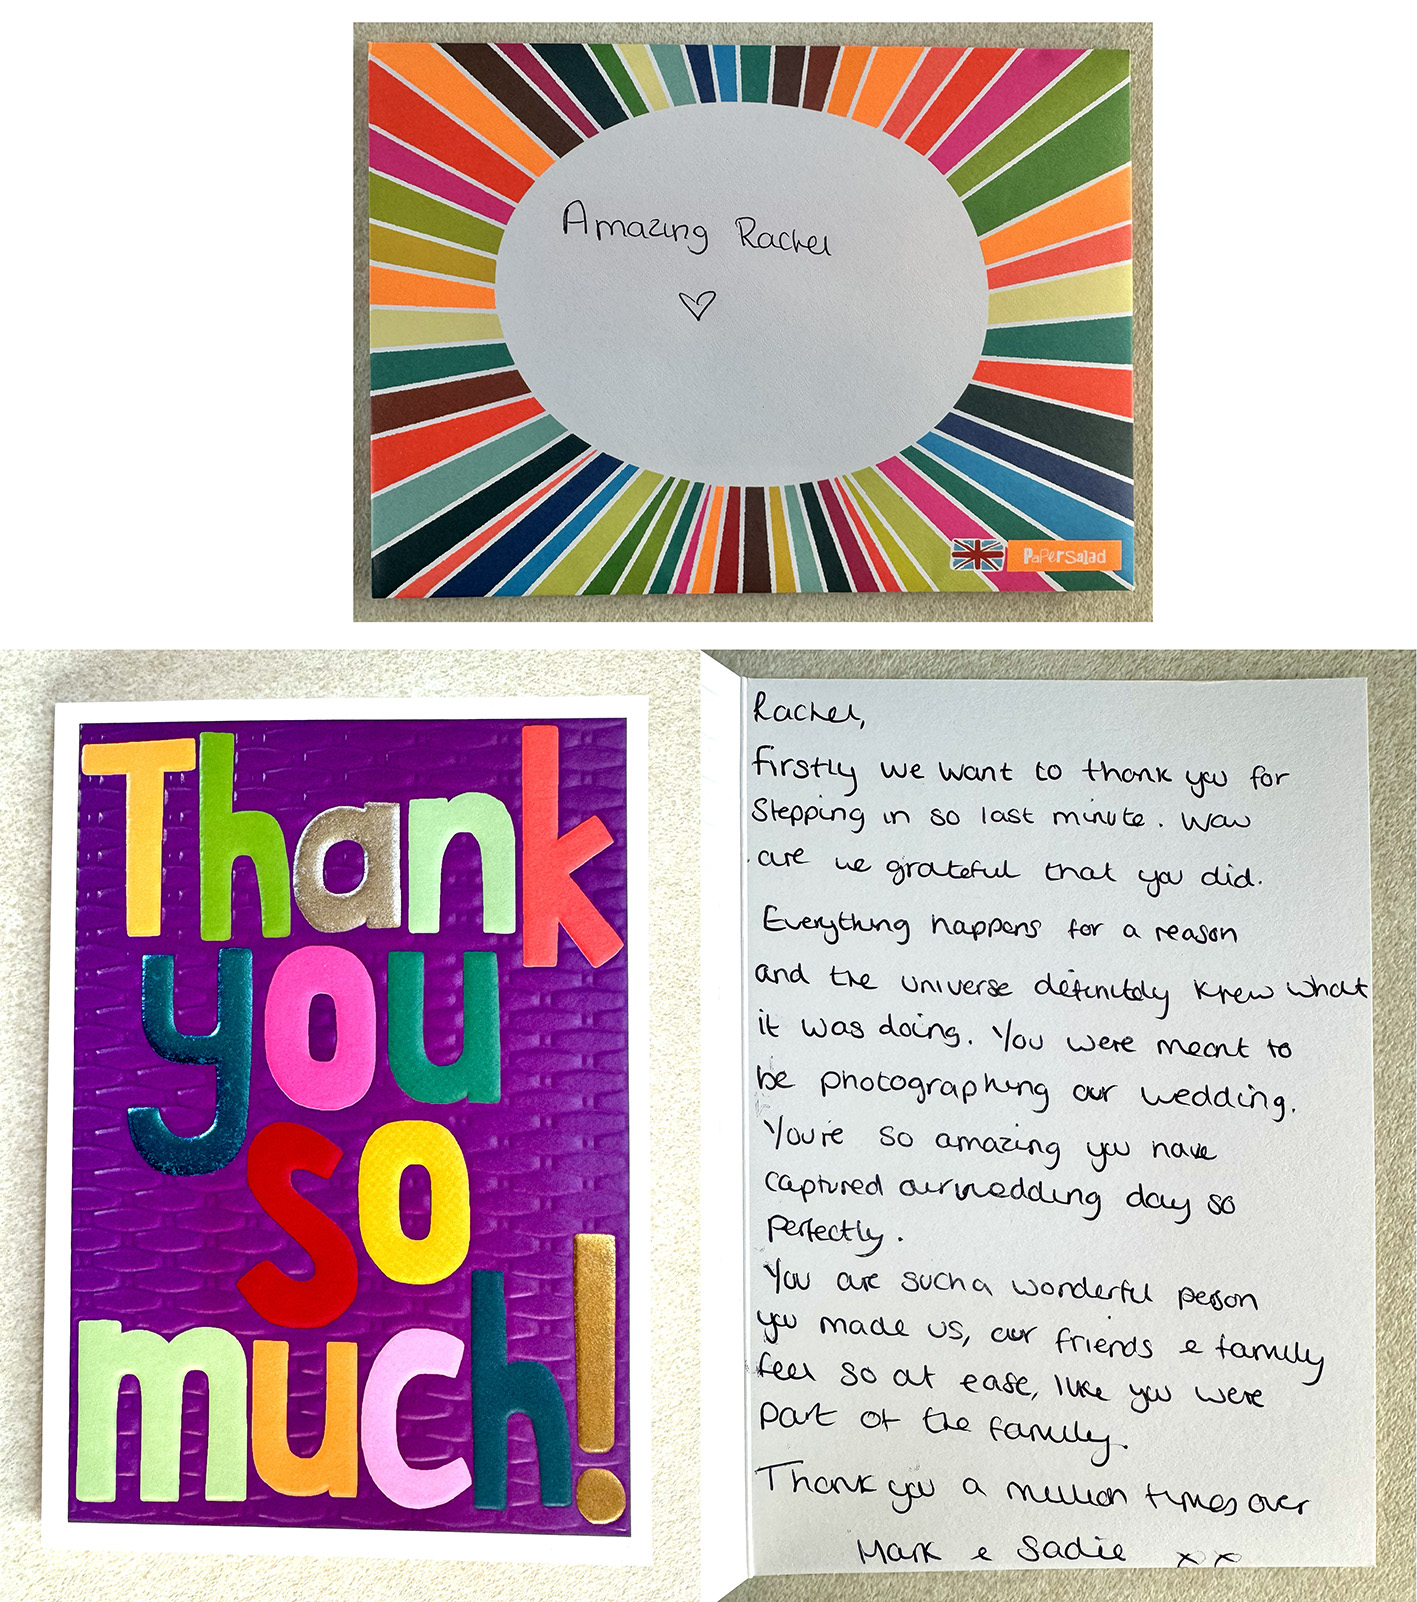 Amazing Rachel
♡
PaperSalad
Thank
you
so
much!
Rachel,
Firstly we want to thank you for
Stepping in so last minute. Wow
are we grateful that you did.
Everything happens for a reason
and the universe definitely knew what
it was doing. You were meant to
be photographing our wedding.
You're so amazing you have
captured our wedding day so
perfectly.
You are such a wonderful person
you made us, our friends & family
feel so at ease, like you were
part of the family.
Thank you a million times over
Mark & Sadie xx